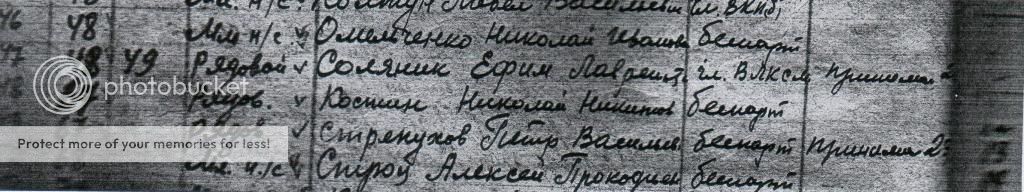 мл. н/с. Колтун Павел Васильев чл. ВКП(б)
46 48 Мл н/с. v Омельченко Николай Иванов беспарт
47 48 49 Рядовой v Соляник Ефим Лаврент чл. ВЛКСМ принима
Рядов. v Костин Николай Никитов беспарт
Рядов v Стрепухов Петр Васильев беспарт принима 2
Мл. н/с v Строй Алексей Прокофьев беспарт
photobucket
Protect more of your memories for less!